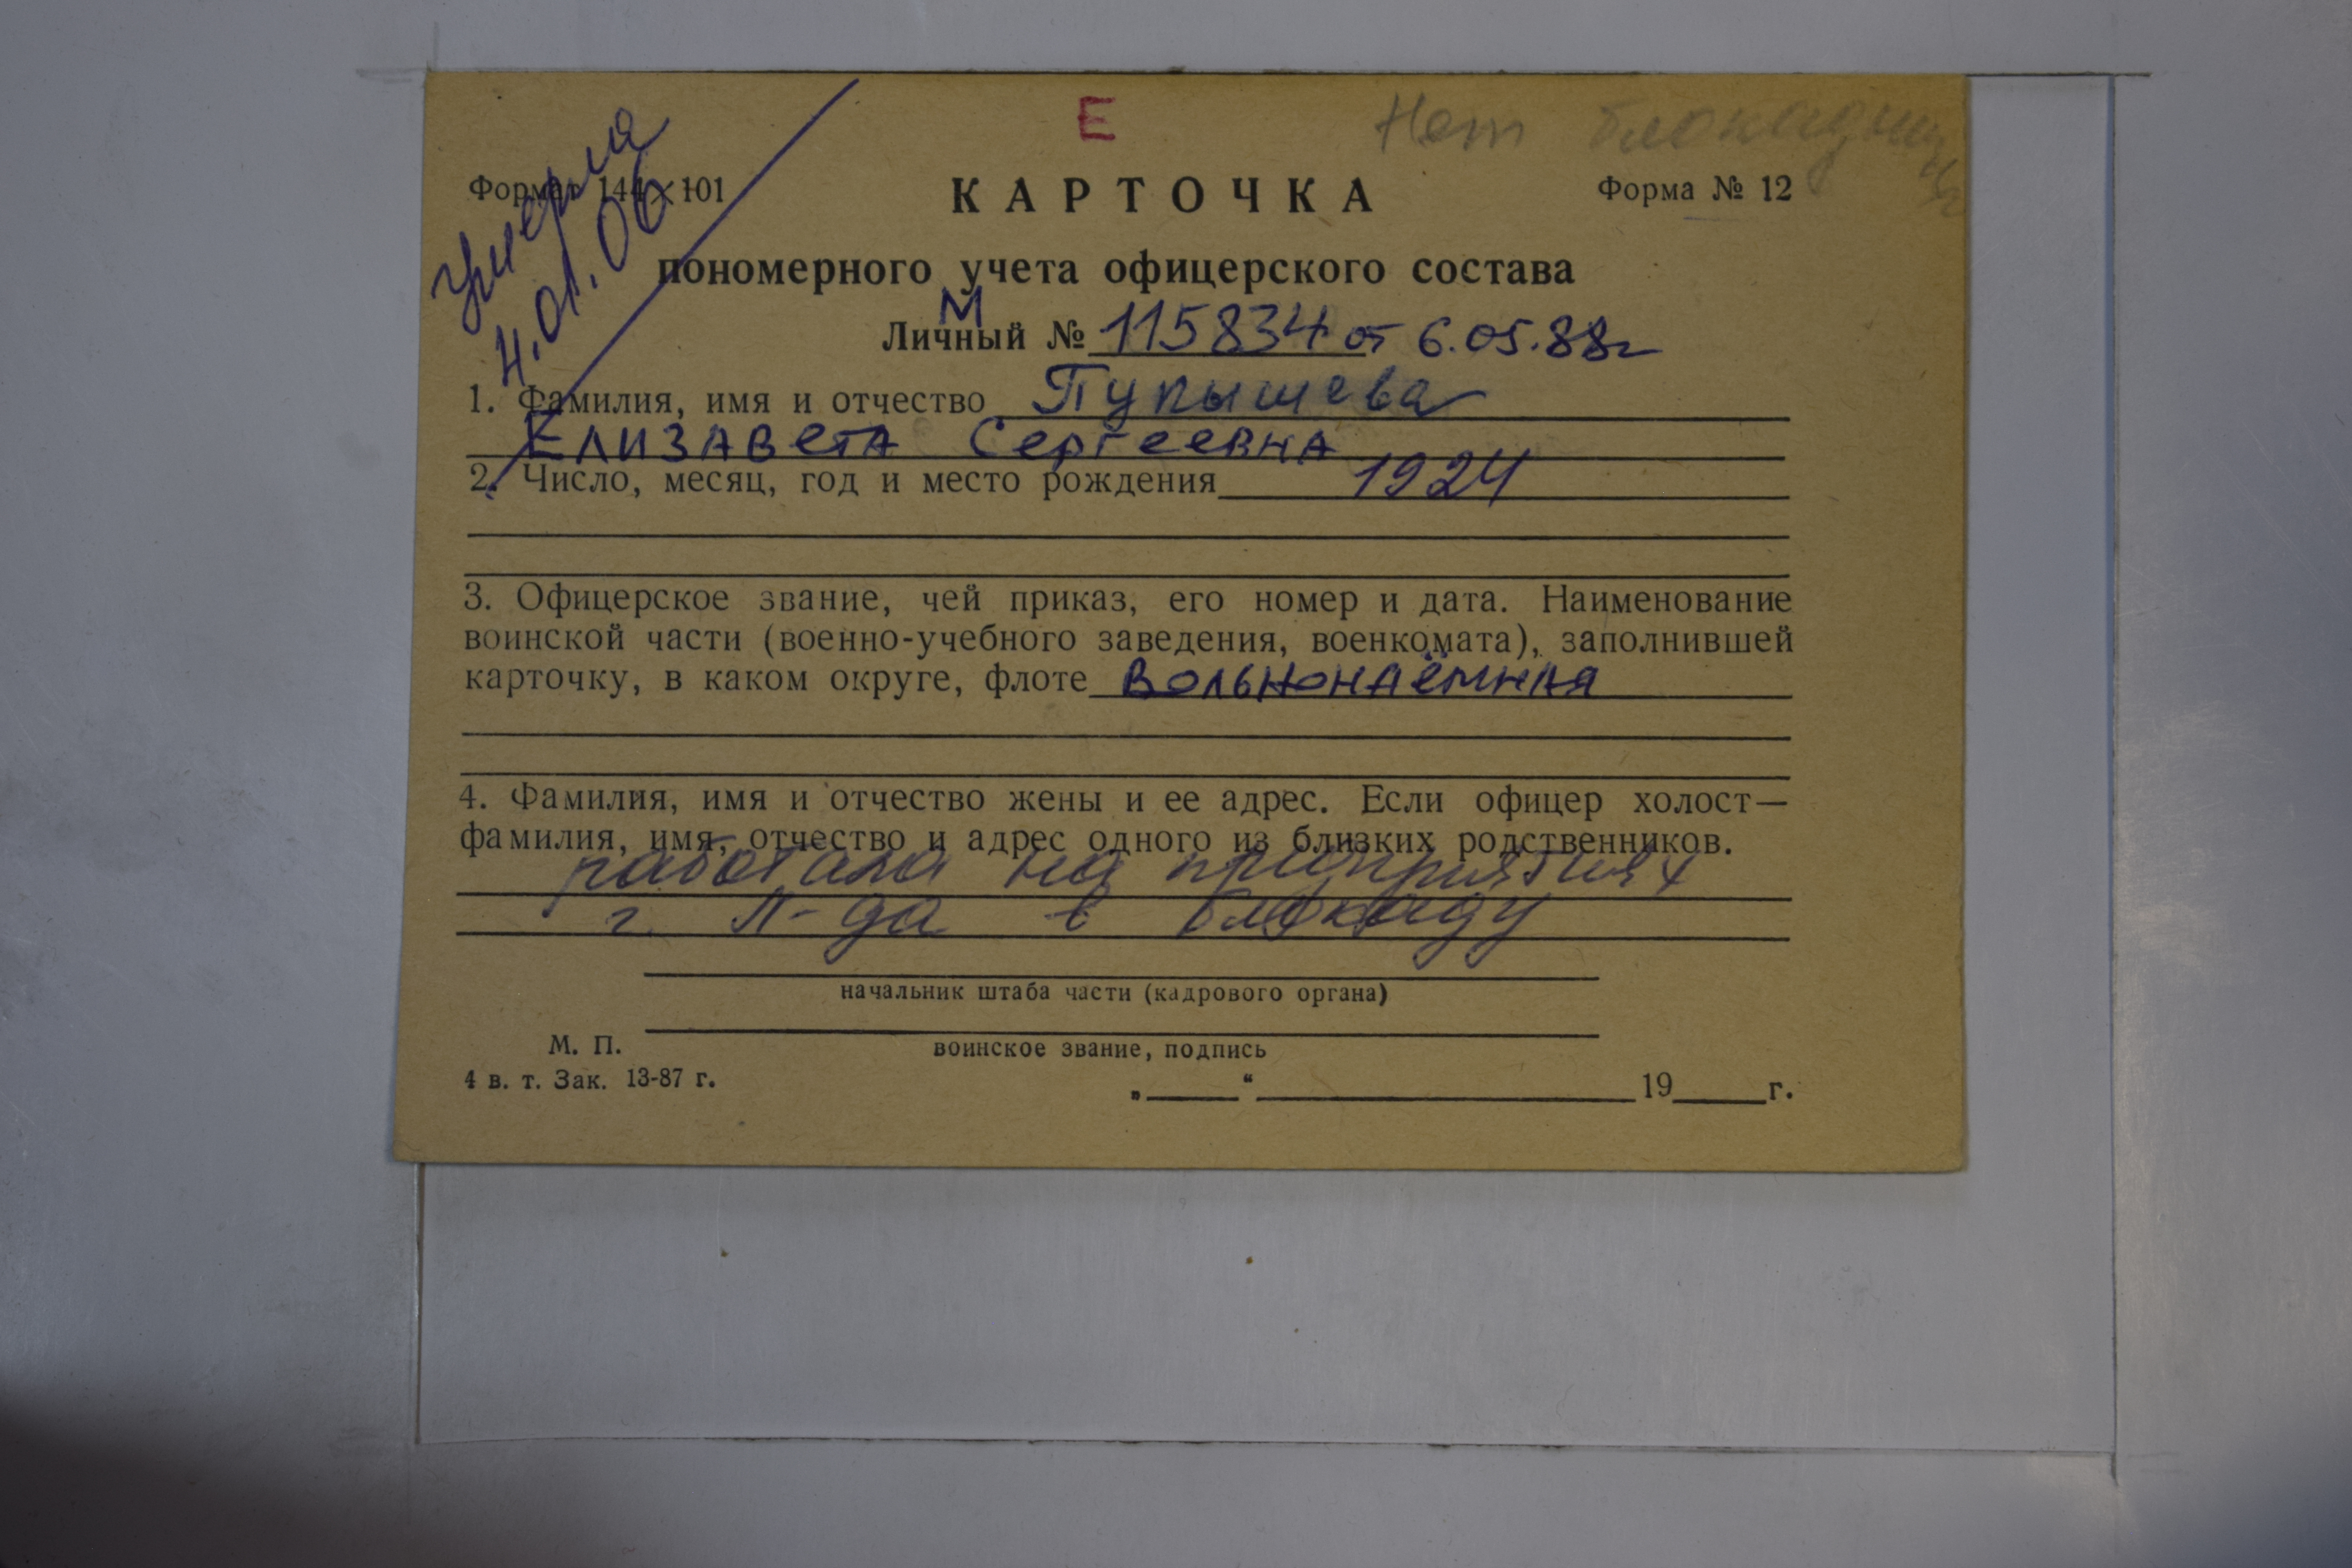 Е
Нет блокадницы
умерла
4.01.06
Формат 144×101
КАРТОЧКА
Форма № 12
пономерного учета офицерского состава
М
Личный № 115834 от 6.05.88г
1. Фамилия, имя и отчество Пупышева
Елизавета Сергеевна
2. Число, месяц, год и место рождения 1924
3. Офицерское звание, чей приказ, его номер и дата. Наименование
воинской части (военно-учебного заведения, военкомата), заполнившей
карточку, в каком округе, флоте Вольнонаёмная
4. Фамилия, имя и отчество жены и ее адрес. Если офицер холост—
фамилия, имя, отчество и адрес одного из близких родственников.
работала на предприятиях
г. Л-да в блокаду
начальник штаба части (кадрового органа)
М. П.
воинское звание, подпись
4 в. т. Зак. 13-87 г.
„ “ 19 г.